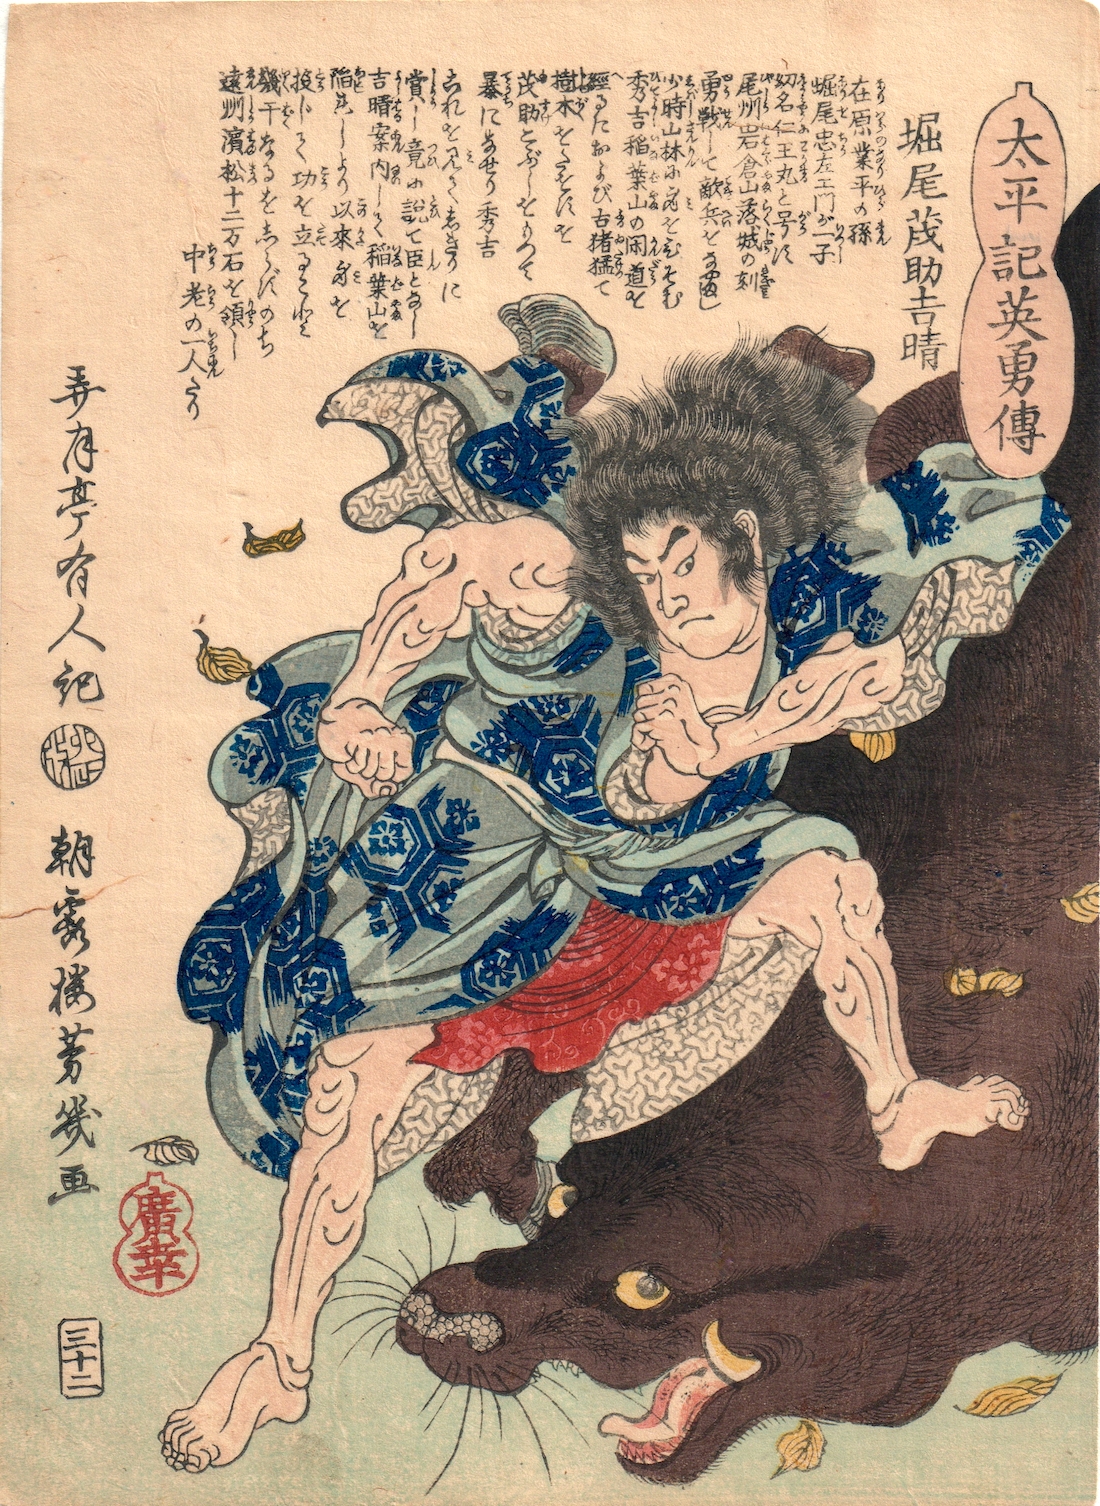 太平記英勇傳
堀尾茂助吉晴
在原業平の孫
堀尾忠左エ門が一子
幼名仁王丸と号す
尾州岩倉山落城の刻
勇戦して敵兵を
少時山林に身をひそむ
秀吉稲葉山の間道を
經るにおよび古猪猛て
樹木を
茂助こぶしをもつて
暴になせり秀吉
これを見て
賞し竟に訟て臣となし
吉晴案内して稲葉山を
陥れしより以來身を
投じて功を立ること
幾千なるをしらずのち
遠州濱松十二万石を領し
中老の一人たり
弄月亭有人記
朝霞楼芳幾画
廣幸
三十二